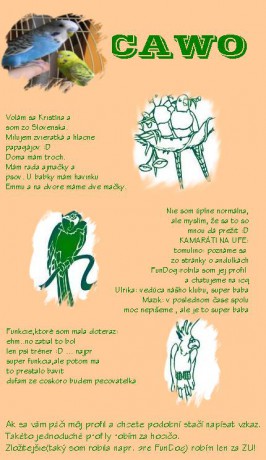 CAWO
Volám sa Kristína a
som zo Slovenska.
Milujem zvieratká a hlavne
papagájov :D
Doma mám troch.
Mám rada aj mačky a
psov. U babky mám havinku
Emmu a na dvore máme dve mačky.
Nie som úplne normálna,
ale myslím, že sa to so
mnou dá prežiť :D
KAMARÁTI NA UFE:
tomulino: poznáme sa
zo stránky o andulkách
FunDog:robila som jej profil
a chatujeme na icq
Ulrika: vedúca nášho klubu, super baba
Mazik: v poslednom čase spolu
moc nepíšeme , ale je to super baba
Funkcie,ktoré som mala doteraz:
ehm..no zatiaľ to bol
len psí tréner :D .... napr
super funkcia,ale potom ma
to prestalo baviť
dúfam že čoskoro budem pečovateľka
Ak sa vám páči môj profil a chcete podobný stačí napísať vzkaz.
Takéto jednoduché profily robím za hocičo.
Zložitejšie(taký som robila napr. pre FunDog) robím len za ZU!